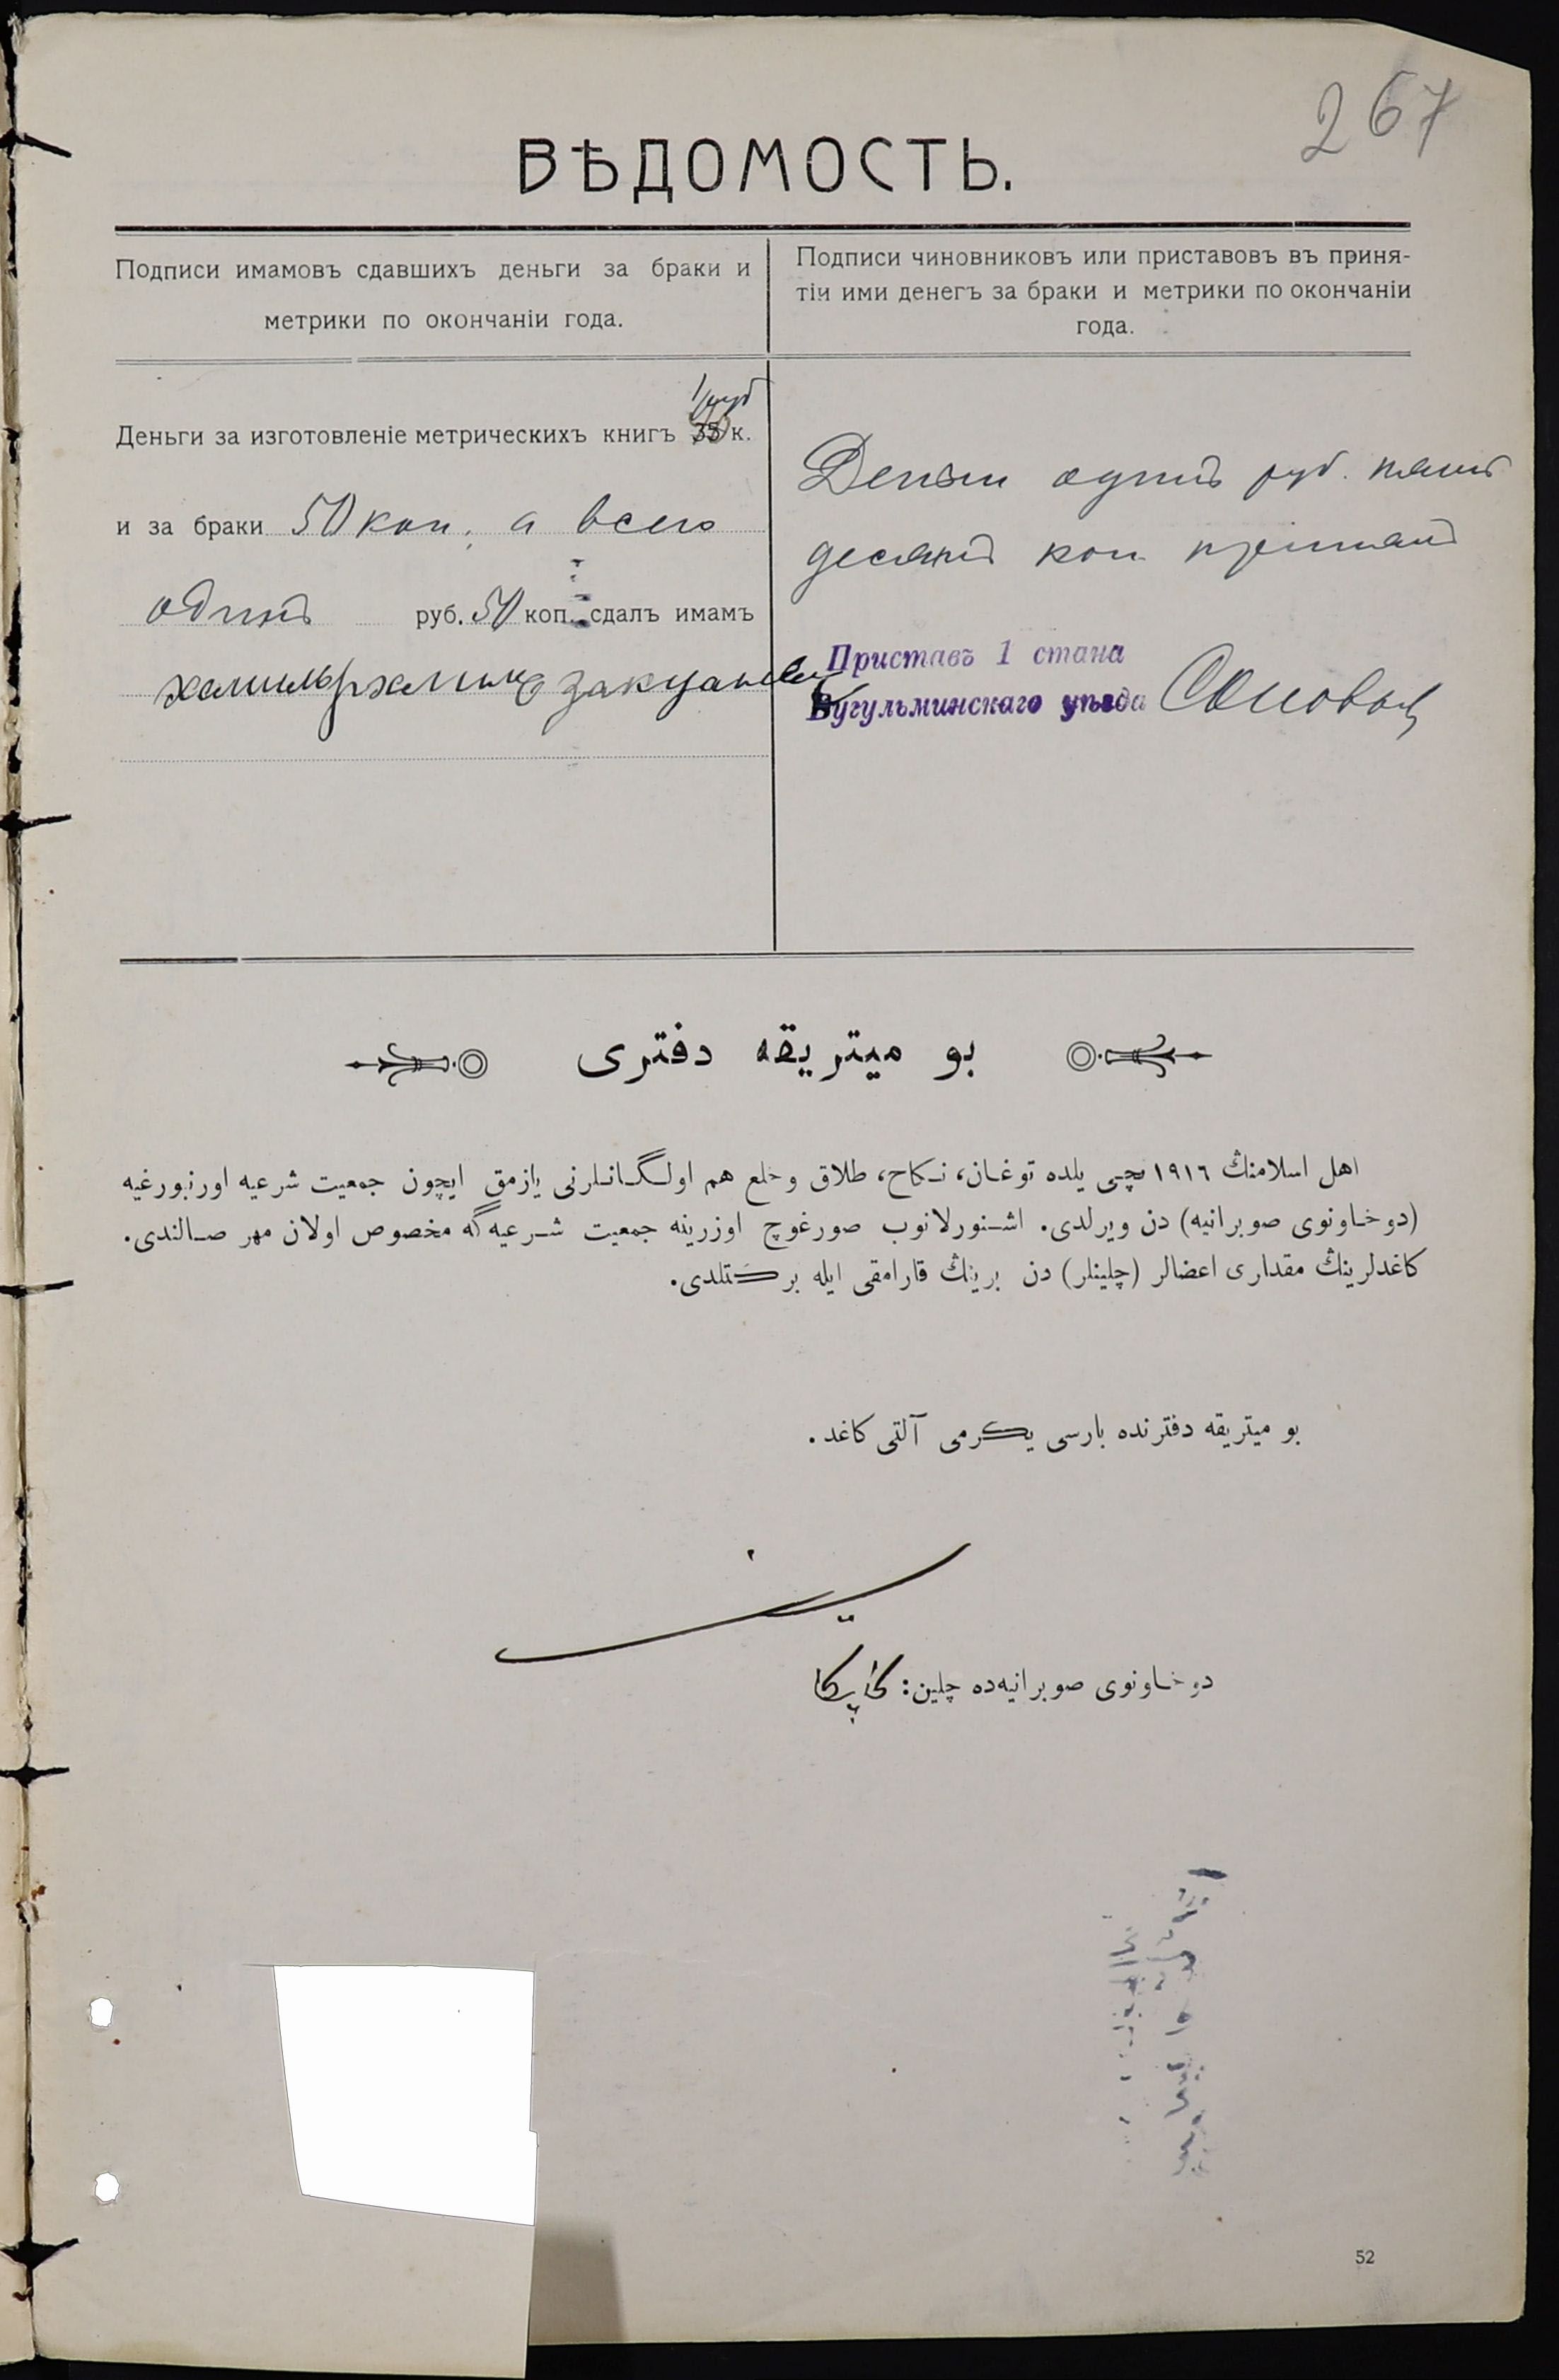 267
ВѢДОМОСТЬ.
Подписи имамовъ сдавшихъ деньги за браки и
метрики по окончаніи года.
Подписи чиновниковъ или приставовъ въ приня-
тіи ими денегъ за браки и метрики по окончаніи
года.
1 руб
Деньги за изготовленіе метрическихъ книгъ 35 к.
и за браки 50 коп. а всего
одинъ руб. 50 коп. сдалъ имамъ
Деньги одинъ руб. пять
десятъ коп. принялъ
Приставъ 1 стана
Бугульминскаго уѣзда
بو میتریقه دفتری
اهل اسلامنڭ ١٩١٦ نچی یلده توغان، نكاح، طلاق و خلع هم اولگانلرنی یازمق ایچون جمعیت شرعیه اورنبورغیه
(دوخاونوی صوبرانیه) دن ویرلدی. اشنورلانوب صورغوچ اوزرینه جمعیت شرعیه گه مخصوص اولان مهر صالندی.
كاغدلرینڭ مقداری اعضالر (چلینلر) دن برینڭ قارامقی ایله بركتلدی.
بو میتریقه دفترنده بارسی یكرمی آلتی كاغد.
دوخاونوی صوبرانیه‌ده چلین:
52